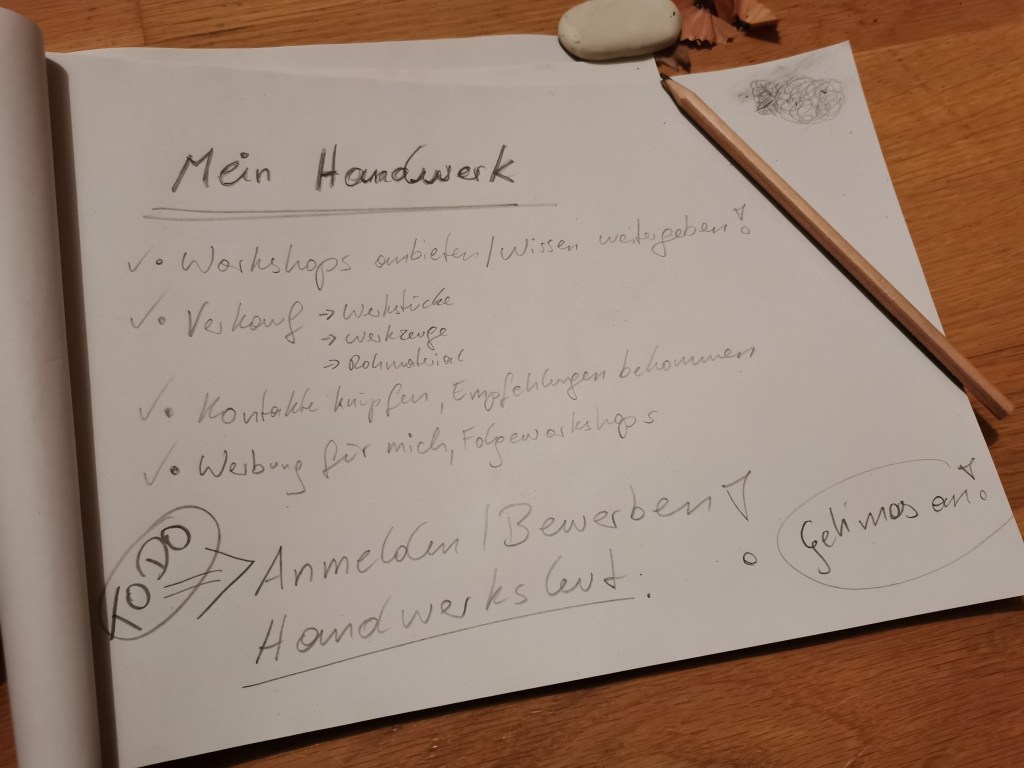 Mein Handwerk
✓ • Workshops anbieten/Wissen weitergeben!
✓ • Verkauf → Werkstücke
→ Werkzeuge
→ Rohmaterial
✓ • Kontakte knüpfen, Empfehlungen bekommen
✓ • Werbung für mich, Folgeworkshops
TODO
Anmelden/Bewerben!
Handwerksleut.
Geh mas an!